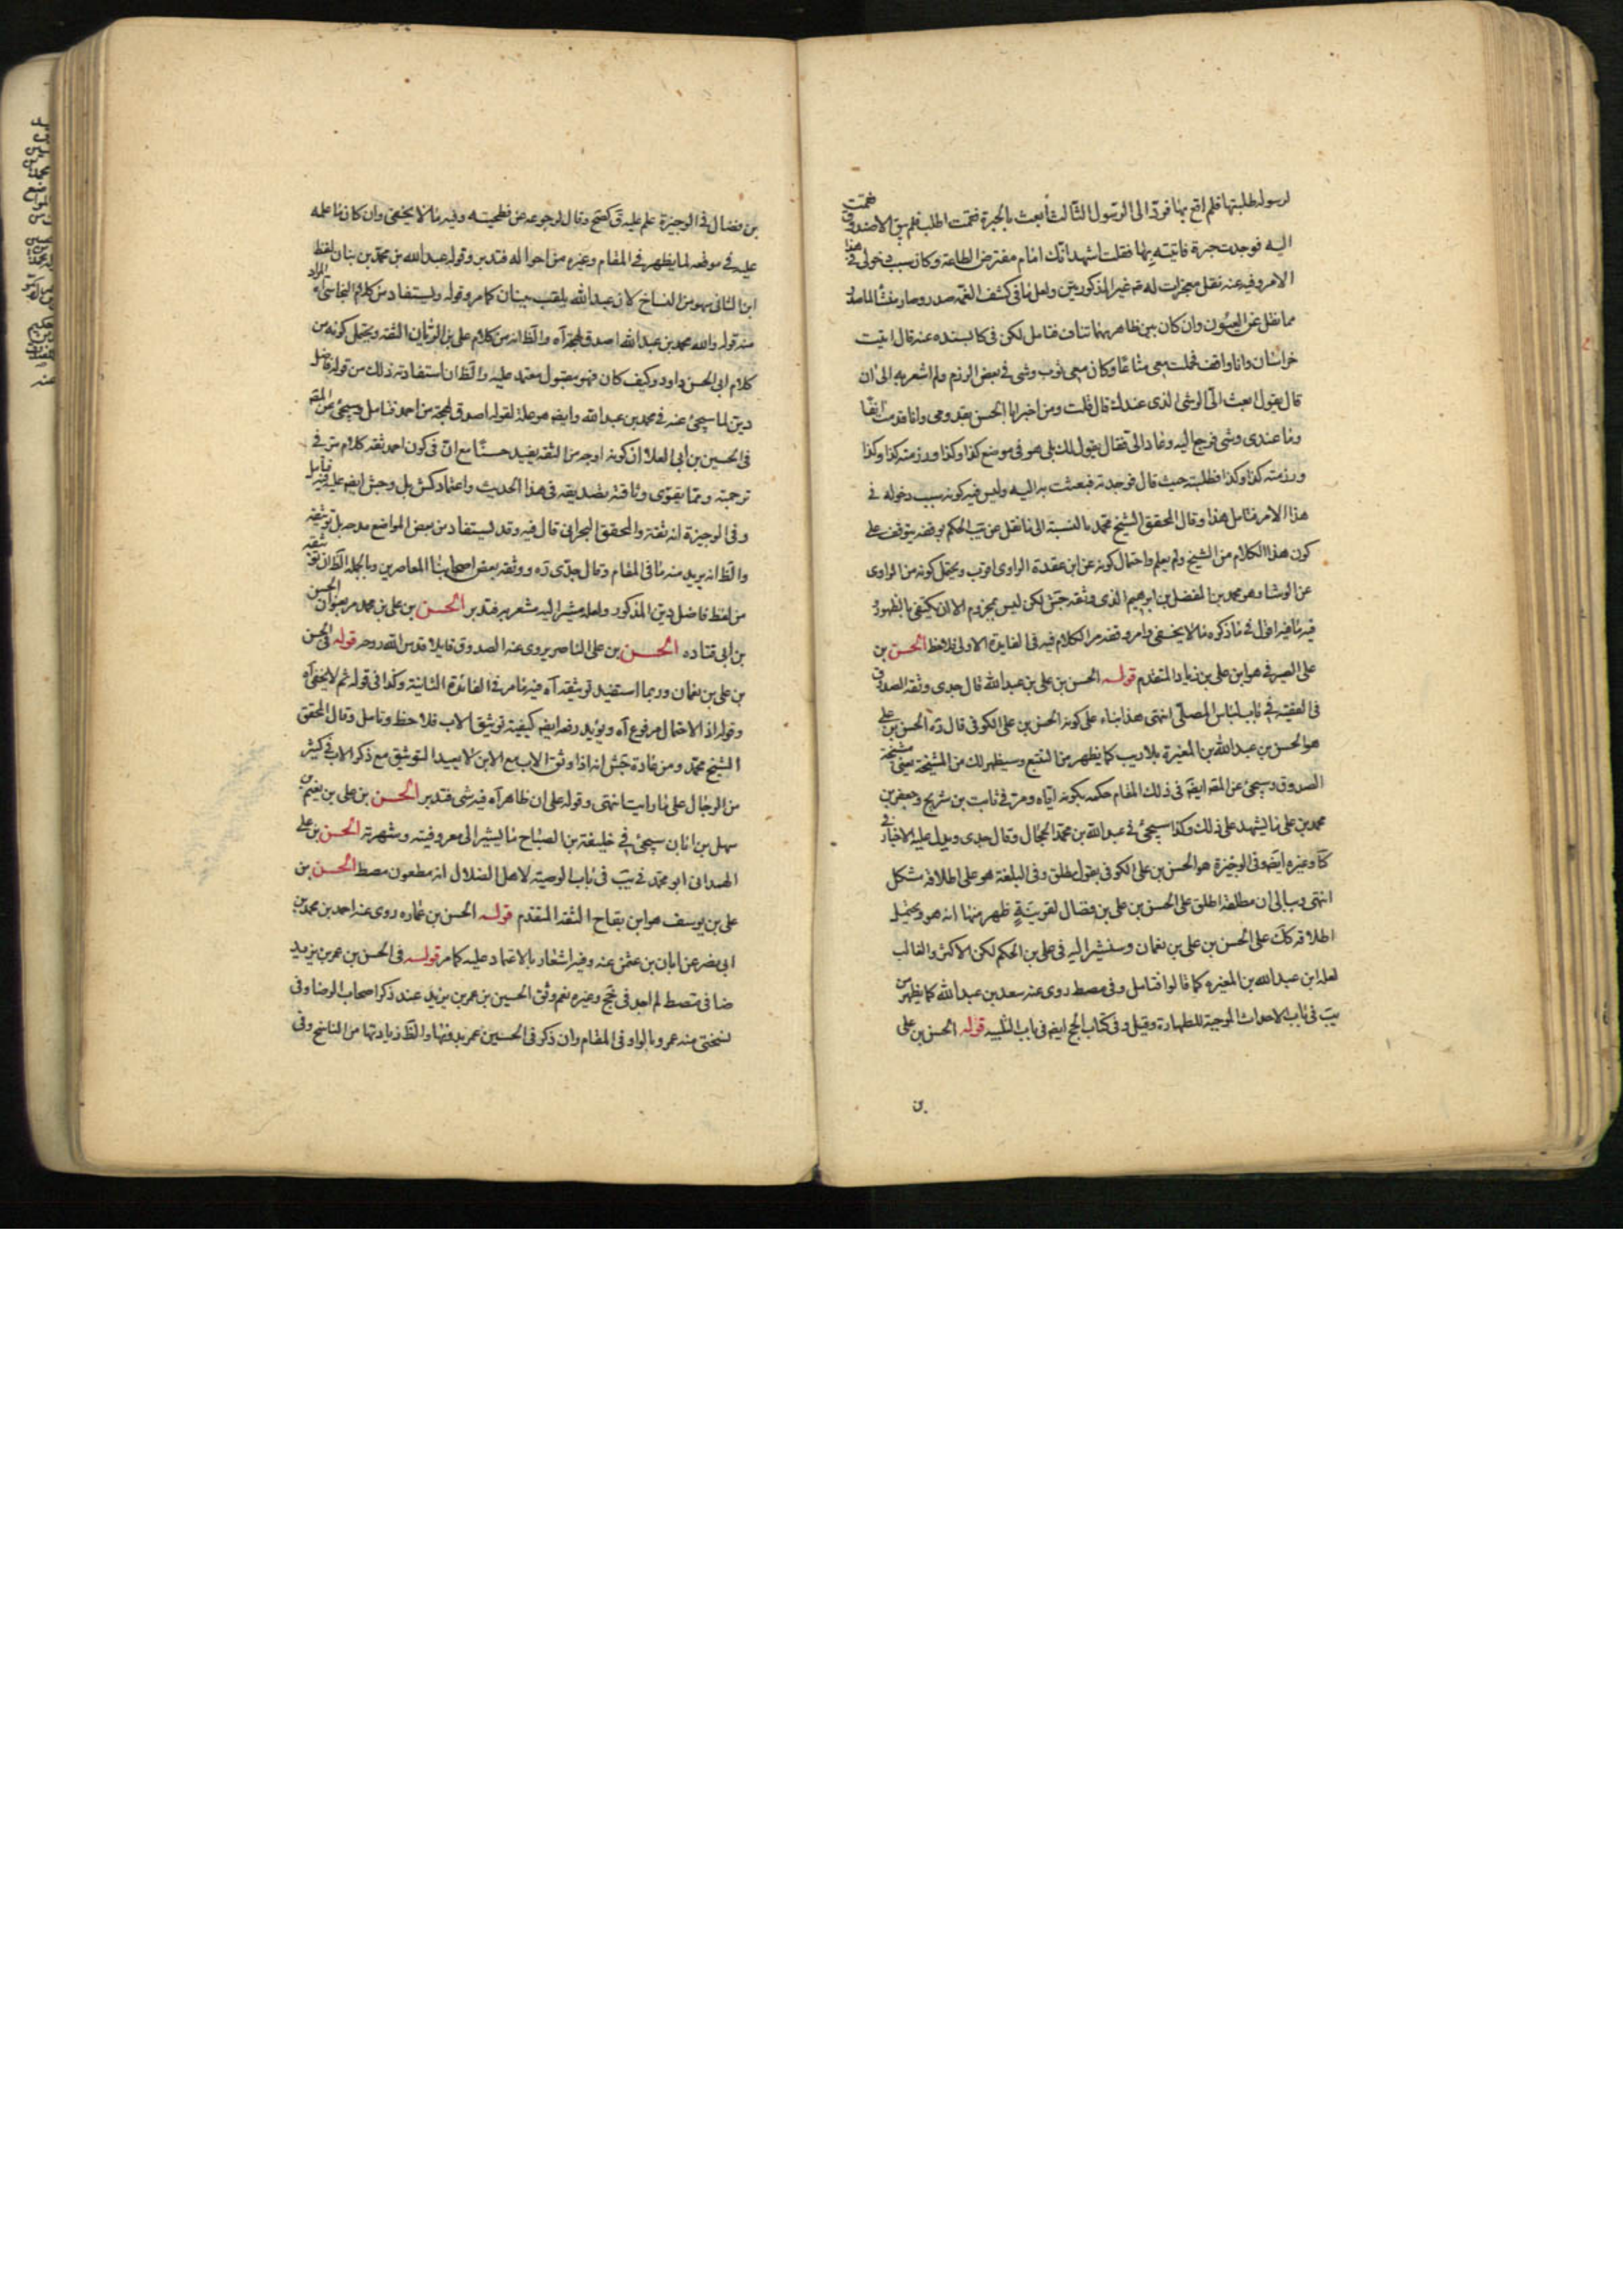 لرسوله طلبتها فلم اقع بها فردّ الىّ الرسول الثالث ابعث بالحبرة فقمت اطلب فلم يبق الا صندوق فقمت
اليه فوجدت حبرة فاتيته بها فقلت اشهد انّك امام مفترض الطاعة وكان سبب دخولى فى هذا
الامر وفيه عنه نقل معجزات له ع غير المذكورتين ولعل ما فى كشف الغمه صدر وصار منشأ لما صدر
مما نقل عن العيون وان كان بين ظاهرهما تناف فتامل لكن فى كا بسنده عنه قال اتيت
خراسان وانا واقف فحملت معى متاعًا وكان معى ثوب وشى فى بعض الرزم ولم اشعر به الى ان
قال يقول ابعث الىّ الوشى الذى عندك قال قلت ومن اخبر ابا الحسن بقدومى وانا قدمت انفًا
وما عندى وشى فرجع اليه وعاد الىّ فقال يقول لك بلى هو فى موضع كذا وكذا ورزمته كذا وكذا
ورزمته كذا وكذا فطلبته حيث قال فوجدته فبعثت به اليه وليس فيه كونه سبب دخوله فى
هذا الامر فتامل هذا وقال المحقق الشيخ محمّد بالنسبة الى ما نقل عن يب الحكم بوقفه يتوقف على
كون هذا الكلام من الشيخ ولم يعلم واحتمال كونه عن ابن عقدة الراوى اقرب ويحتمل كونه من الراوى
عن الوشا وهو محمد بن المفضل بن ابرهيم الذى وثقه جش لكن ليس بمجزوم الا ان يكتفى بالظهور
فيه ما فيه اقول فى ما ذكره ما لا يخفى وامر وقفه مر الكلام فيه فى الفايدة الاولى فلاحظ الحسن بن
على الصيرفى هو ابن على بن زياد المتقدم قوله الحسن بن على بن عبد الله قال جدى وثقه الصدوق
فى الفقيه فى باب لباس المصلّى انتهى هذا بناء على كونه الحسن بن على الكوفى قال ره الحسن بن على
هو الحسن بن عبد الله بن المغيرة بلا ريب كما يظهر من التتبع وسيظهر لك من المشيخة يعنى مشيخة
الصدوق وسيجئ عن المقه ايضًا فى ذلك المقام حكمه بكونه اياه ومرّ فى ثابت بن شريح وجعفر بن
محمد بن على ما يشهد على ذلك وكذا سيجئ فى عبد الله بن محمّد الحجال وقال جدى ويدل عليه الاخبار فى
كا وغيره ايضا وفى الوجيزة هو الحسن بن على الكوفى بقول مطلق وفى البلغة هو على اطلاقه مشكل
انتهى وببالى ان مطلقه اطلق على الحسن بن على بن فضال لقرينةٍ ظهر منها انه هو ويحتمل
اطلاقه كك على الحسن بن على بن نعمان وسنشير اليه فى على بن الحكم لكن الاكثر والغالب
لعله ابن عبد الله بن المغيرة كما قالوا فتامل وفى مصط روى عنه سعد بن عبد الله كما يظهر من
يب فى باب الاحداث الموجبة للطهارة وقيل وفى كتاب الحج ايضه فى باب التلبيه قوله الحسن بن على
بن
بن فضال فى الوجيزة علم عليه ق كصح وقال لرجوعه عن فطحيته وفيه ما لا يخفى وان كان ما علمه
عليه فى موقعه لما يظهر فى المقام وغيره من احواله فتدبر وقوله عبد الله بن محمّد بن بنان لفظ
ابن الثانى سهو من النساخ لان عبد الله يلقب ببنان كما مر وقوله وليستفاد من كلام النجاشى اه المراد
منه قوله والله محمد بن عبد الله اصدق لهجة اه والظ انه من كلام على بن الريان الثقه ويحتمل كونه من
كلام ابى الحسن داود وكيف كان فهو مقبول معتمد عليه والظ ان استفادته ذلك من قوله فاضل
ديّن لما سيجئ عنه فى محمد بن عبد الله وايضه هو علة لقوله اصدق لهجة من احمد فتامل وسيجئ عن المقه
فى الحسين بن أبى العلا ان كونه اوجه من الثقه يفيد حسنًا مع انّ فى كون احمد ثقه كلام مرّ فى
ترجمته ومما يقوّى وثاقته تصديقه فى هذا الحديث واعتماد كش بل وجش ايضه عليه فيه فتامل
وفى الوجيزة انه ثقة والمحقق البحرانى قال فيه وقد ليستفاد من بعض المواضع مدحه بل توثيقه
والظ انه يريد منه ما فى المقام وقال جدّى ره ووثقه بعض اصحابنا المعاصرين وبالجملة الظ ان ثقته
من لفظ فاضل ديّن المذكور ولعله مشير اليه مشعر به فتدبر الحسن بن على بن محمد مر بعنوان الحسن
بن ابى قتاده الحسن بن على الناصر يروى عنه الصدوق قايلا قدس الله روحه قوله فى الحسن
بن على بن نعمان وربما استفيد توثيقه اه فيه ما مر فى الفائدة الثانية وكذا فى قوله ثم لا يخفى اه
وقوله اذ الاحتمال مرفوع اه ويؤيد رفعه ايضه كيفية توثيق الاب فلاحظ وتامل وقال المحقق
الشيخ محمّد ومن عادة جش انه اذا وثق الاب مع الابن لا يعيد التوثيق مع ذكر الاب فى كثير
من الرجال على ما رايت انتهى وقوله على ان ظاهر اه فيه شى فتدبر الحسن بن على بن نعيم بن
سهل بن ابان سيجئ فى خليفة بن الصباح ما يشير الى معروفيته وشهرته الحسن بن على
الهمدانى ابو محمّد فى يب فى باب الوصية لاهل الضلال انه مطعون مصط الحسن بن
على بن يوسف هو ابن بقاح الثقه المتقدم قوله الحسن بن عماره روى عنه احمد بن محمد بن
ابى نصر عن ابان بن عثمن عنه وفيه اشعار بالاعتماد عليه كما مر قوله فى الحسن بن عمر بن يزيد
ضا فى مصط لم اجد فى جخ وغيره نعم وثق الحسين بن عمر بن يزيد عند ذكر اصحاب الرضا وفى
نسختى منه عمرو بالواو فى المقام وان ذكر فى الحسين عمر بدونها والظ زيادتها من الناسخ وفى